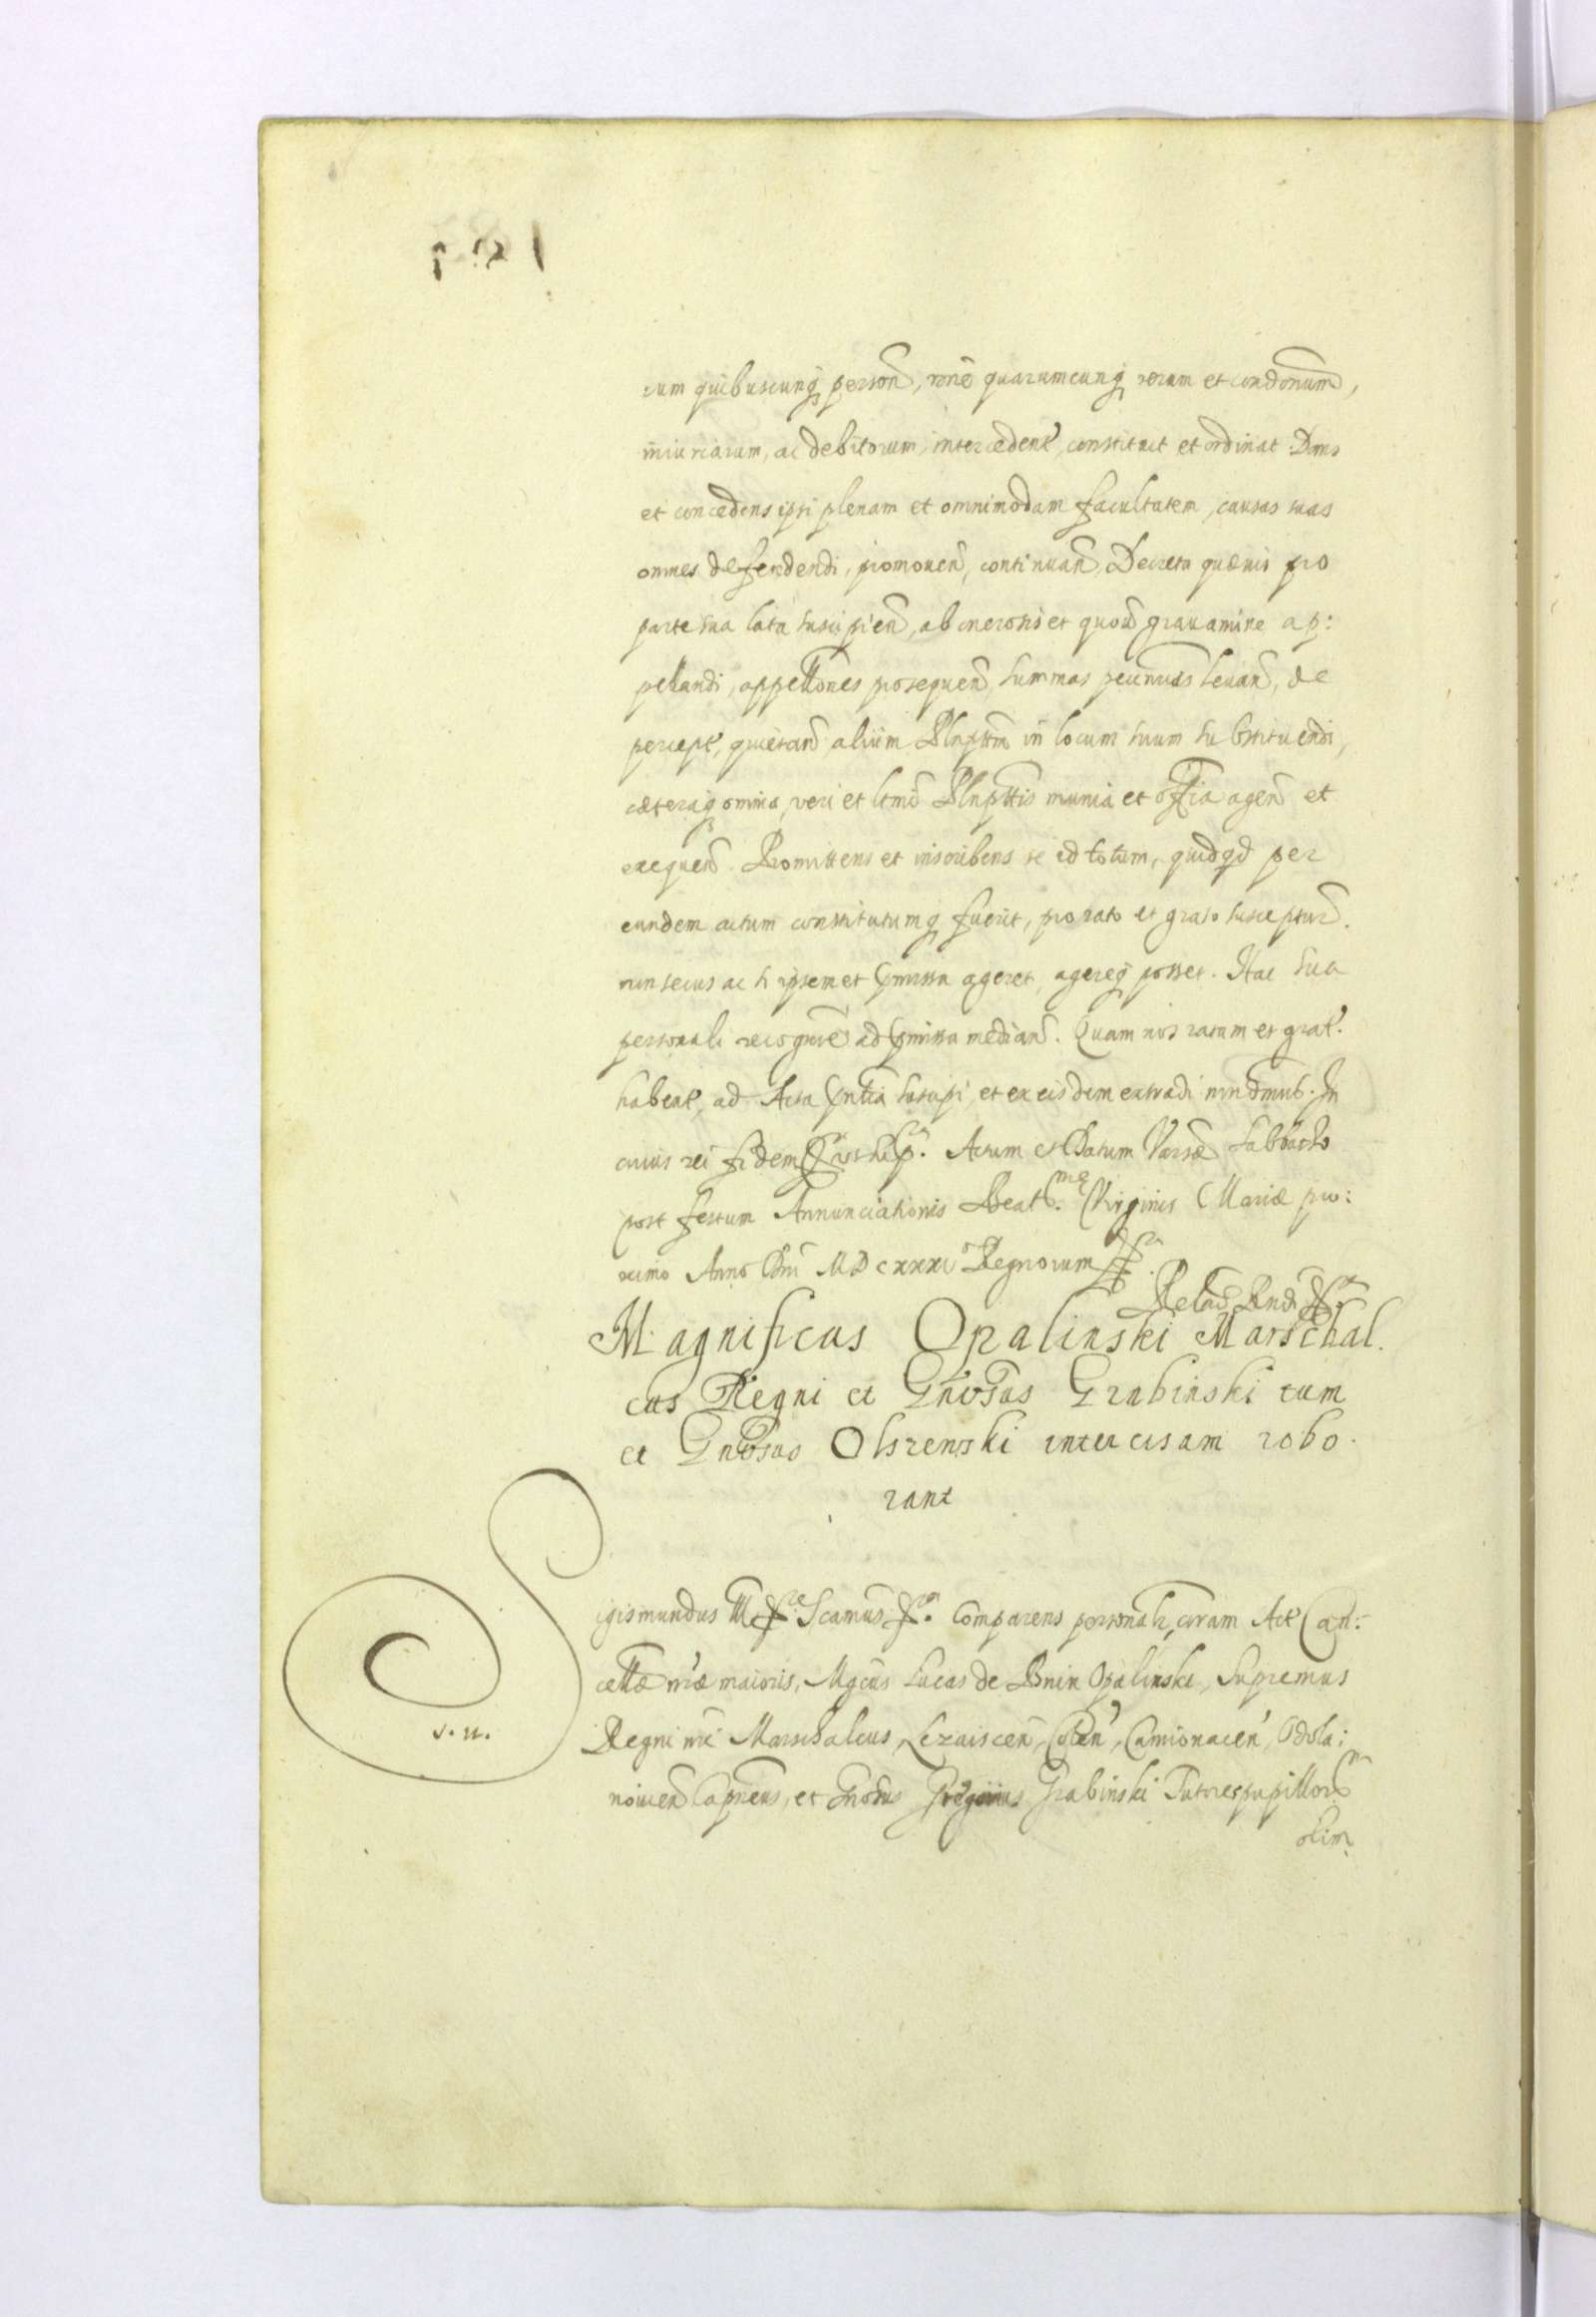 cum quibuscunq person, rone quarumcunq rerum et condonum,
iniuriarum, ac debitorum, intercedent, constituit et ordinat. Dans
et concedens ipsi plenam et omnimodam facultatem, causas suas
omnes defendendi, promouen, continuan, Decreta quæuis pro
parte sua lata suscipien, ab onerosis et quouis grauamine ap:
pellandi, appellones prosequen, summas pecunias leuan, de
percept, quietan, alium Plnpttm in locum suum substituendi,
cæteraq omnia, veri et ltmi Plnpttis munia et officia agen et
exequen. Promittens et inscribens se id totum, quidqd per
eundem actum constitutumq fuerit, pro rato et grato suscepturu.
non secus ac si ipsemet pmissa ageret, agereq posset. Hac sua
personali recogne ad pmissa median. Quam nos ratam et grat.
habent, ad Acta pntia suscipi, et ex eisdem extradi mndmus. In
cuius rei fidem. Actum et Datum Varsæ Sabbatho
post festum Annunciationis Beatmæ Virginis Mariæ pro:
ximo Anno Dni MDCXXXI Regnorum
Magnificus Opalinski Marschal.
cus Regni et Gnosus Grabinski tum
et Gnosus Olszenski intercisam robo.
rant
Sigismundus III Scamus Comparens personalr, coram Act Can:
cellæ nræ maioris, Mgcus Lucas de Bnin Opalinski, Supremus
Regni nri Marschalcus, Lezaiscen, Camionacen, Odola:
nouien Capneus, et Gnosus Gregorius Grabinski Tutores pupillorum
S. n.
olim